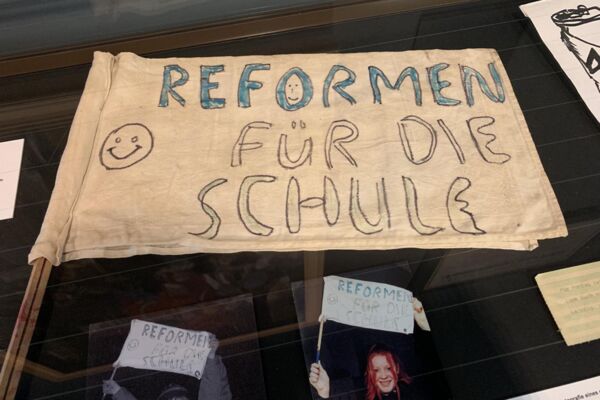 REFORMEN
FÜR DIE
SCHULE
REFORMEN
FÜR DIE
SCHULE
REFORMEN
FÜR DIE
SCHULE